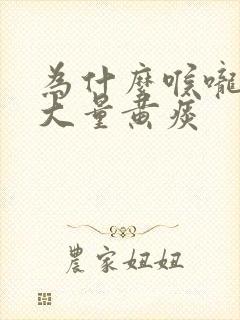 为什麼喉嚨
大量黄痰
農家妞妞